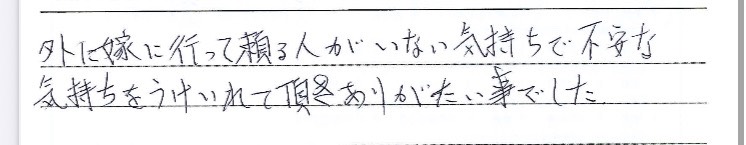 外に嫁に行って頼る人がいない気持ちで不安な
気持ちをうけいれて頂きありがたい事でした